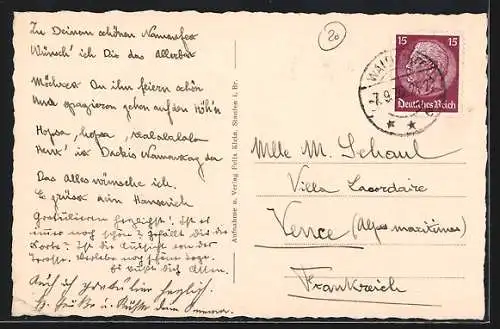 Zu Deinem schönen Namensfest
Wünsch' ich Dir das Allerbest
Möchtest Du ihn feiern schön
Und grazieren gehen auf den Höh'n
Hopsa, hopsa,
Heut' is' Namenstag da
Das Alles wünsche ich.
Es grüsst ein
Gratulieren herzlichst! Ist es
immer noch schön? Gefällt Dir die
Karte? Ist die Aussicht von der
noch schöne Tage.
Es küsst Dich Allen.
Auch ich gratuliere herzlich.
Grüße u. Küsse Deine
Aufnahme u. Verlag Felix Klein, Staufen i. Br.
20
15 15
Deutsches Reich
WALD
-7.9.
Mlle M. Schaul
Villa Lacordaire
Vence (Alpes maritimes)
Frankreich